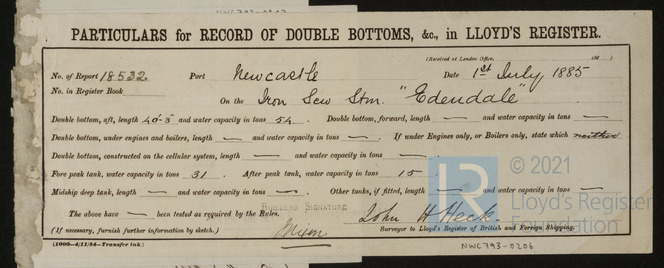 PARTICULARS for RECORD OF DOUBLE BOTTOMS, &c., in LLOYD'S REGISTER.
(Received at London Office, 188 )
No. of Report 18532 Port Newcastle Date 1st July 1885
No. in Register Book
On the Iron Scw Stm. "Edendale"
Double bottom, aft, length 40'-5" and water capacity in tons 54. Double bottom, forward, length — and water capacity in tons —
Double bottom, under engines and boilers, length — and water capacity in tons —. If under Engines only, or Boilers only, state which neither
Double bottom, constructed on the cellular system, length — and water capacity in tons —.
Fore peak tank, water capacity in tons 31. After peak tank, water capacity in tons 15
Midship deep tank, length — and water capacity in tons —. Other tanks, if fitted, length — and water capacity in tons —
BUILDERS SIGNATURE
The above have — been tested as required by the Rules. John H Heck.
(If necessary, furnish further information by sketch.) Surveyor to Lloyd's Register of British and Foreign Shipping.
(1000-4/11/84-Transfer ink.)
NWC793-0206
LR
© 2021
Lloyd's Register
Foundation